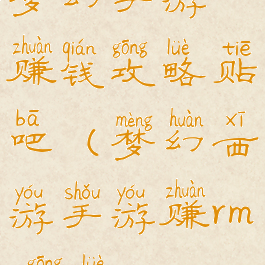 zhuàn qián gōng lüè tiē
赚钱攻略贴
bā mèng huàn xī
吧(梦幻西
yóu shǒu yóu zhuàn
游手游赚rm
gōng lüè